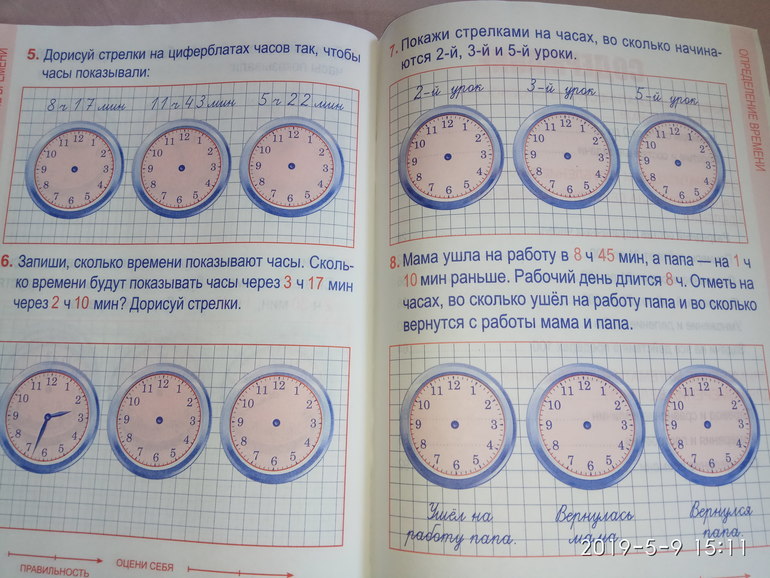 5. Дорисуй стрелки на циферблатах часов так, чтобы
часы показывали:
8 ч 17 мин 11 ч 43 мин 5 ч 22 мин
12 1 2 3 4 5 6 7 8 9 10 11
12 1 2 3 4 5 6 7 8 9 10 11
12 1 2 3 4 5 6 7 8 9 10 11
6. Запиши, сколько времени показывают часы. Сколь-
ко времени будут показывать часы через 3 ч 17 мин
через 2 ч 10 мин? Дорисуй стрелки.
12 1 2 3 4 5 6 7 8 9 10 11
12 1 2 3 4 5 6 7 8 9 10 11
12 1 2 3 4 5 6 7 8 9 10 11
ПРАВИЛЬНОСТЬ
ОЦЕНИ СЕБЯ
7. Покажи стрелками на часах, во сколько начина-
ются 2-й, 3-й и 5-й уроки.
2-й урок 3-й урок 5-й урок
12 1 2 3 4 5 6 7 8 9 10 11
12 1 2 3 4 5 6 7 8 9 10 11
12 1 2 3 4 5 6 7 8 9 10 11
8. Мама ушла на работу в 8 ч 45 мин, а папа — на 1 ч
10 мин раньше. Рабочий день длится 8 ч. Отметь на
часах, во сколько ушёл на работу папа и во сколько
вернутся с работы мама и папа.
12 1 2 3 4 5 6 7 8 9 10 11
12 1 2 3 4 5 6 7 8 9 10 11
12 1 2 3 4 5 6 7 8 9 10 11
Ушёл на
работу папа.
Вернулась
мама
Вернулся
папа.
ОПРЕДЕЛЕНИЕ ВРЕМЕНИ
2019-5-9 15:11